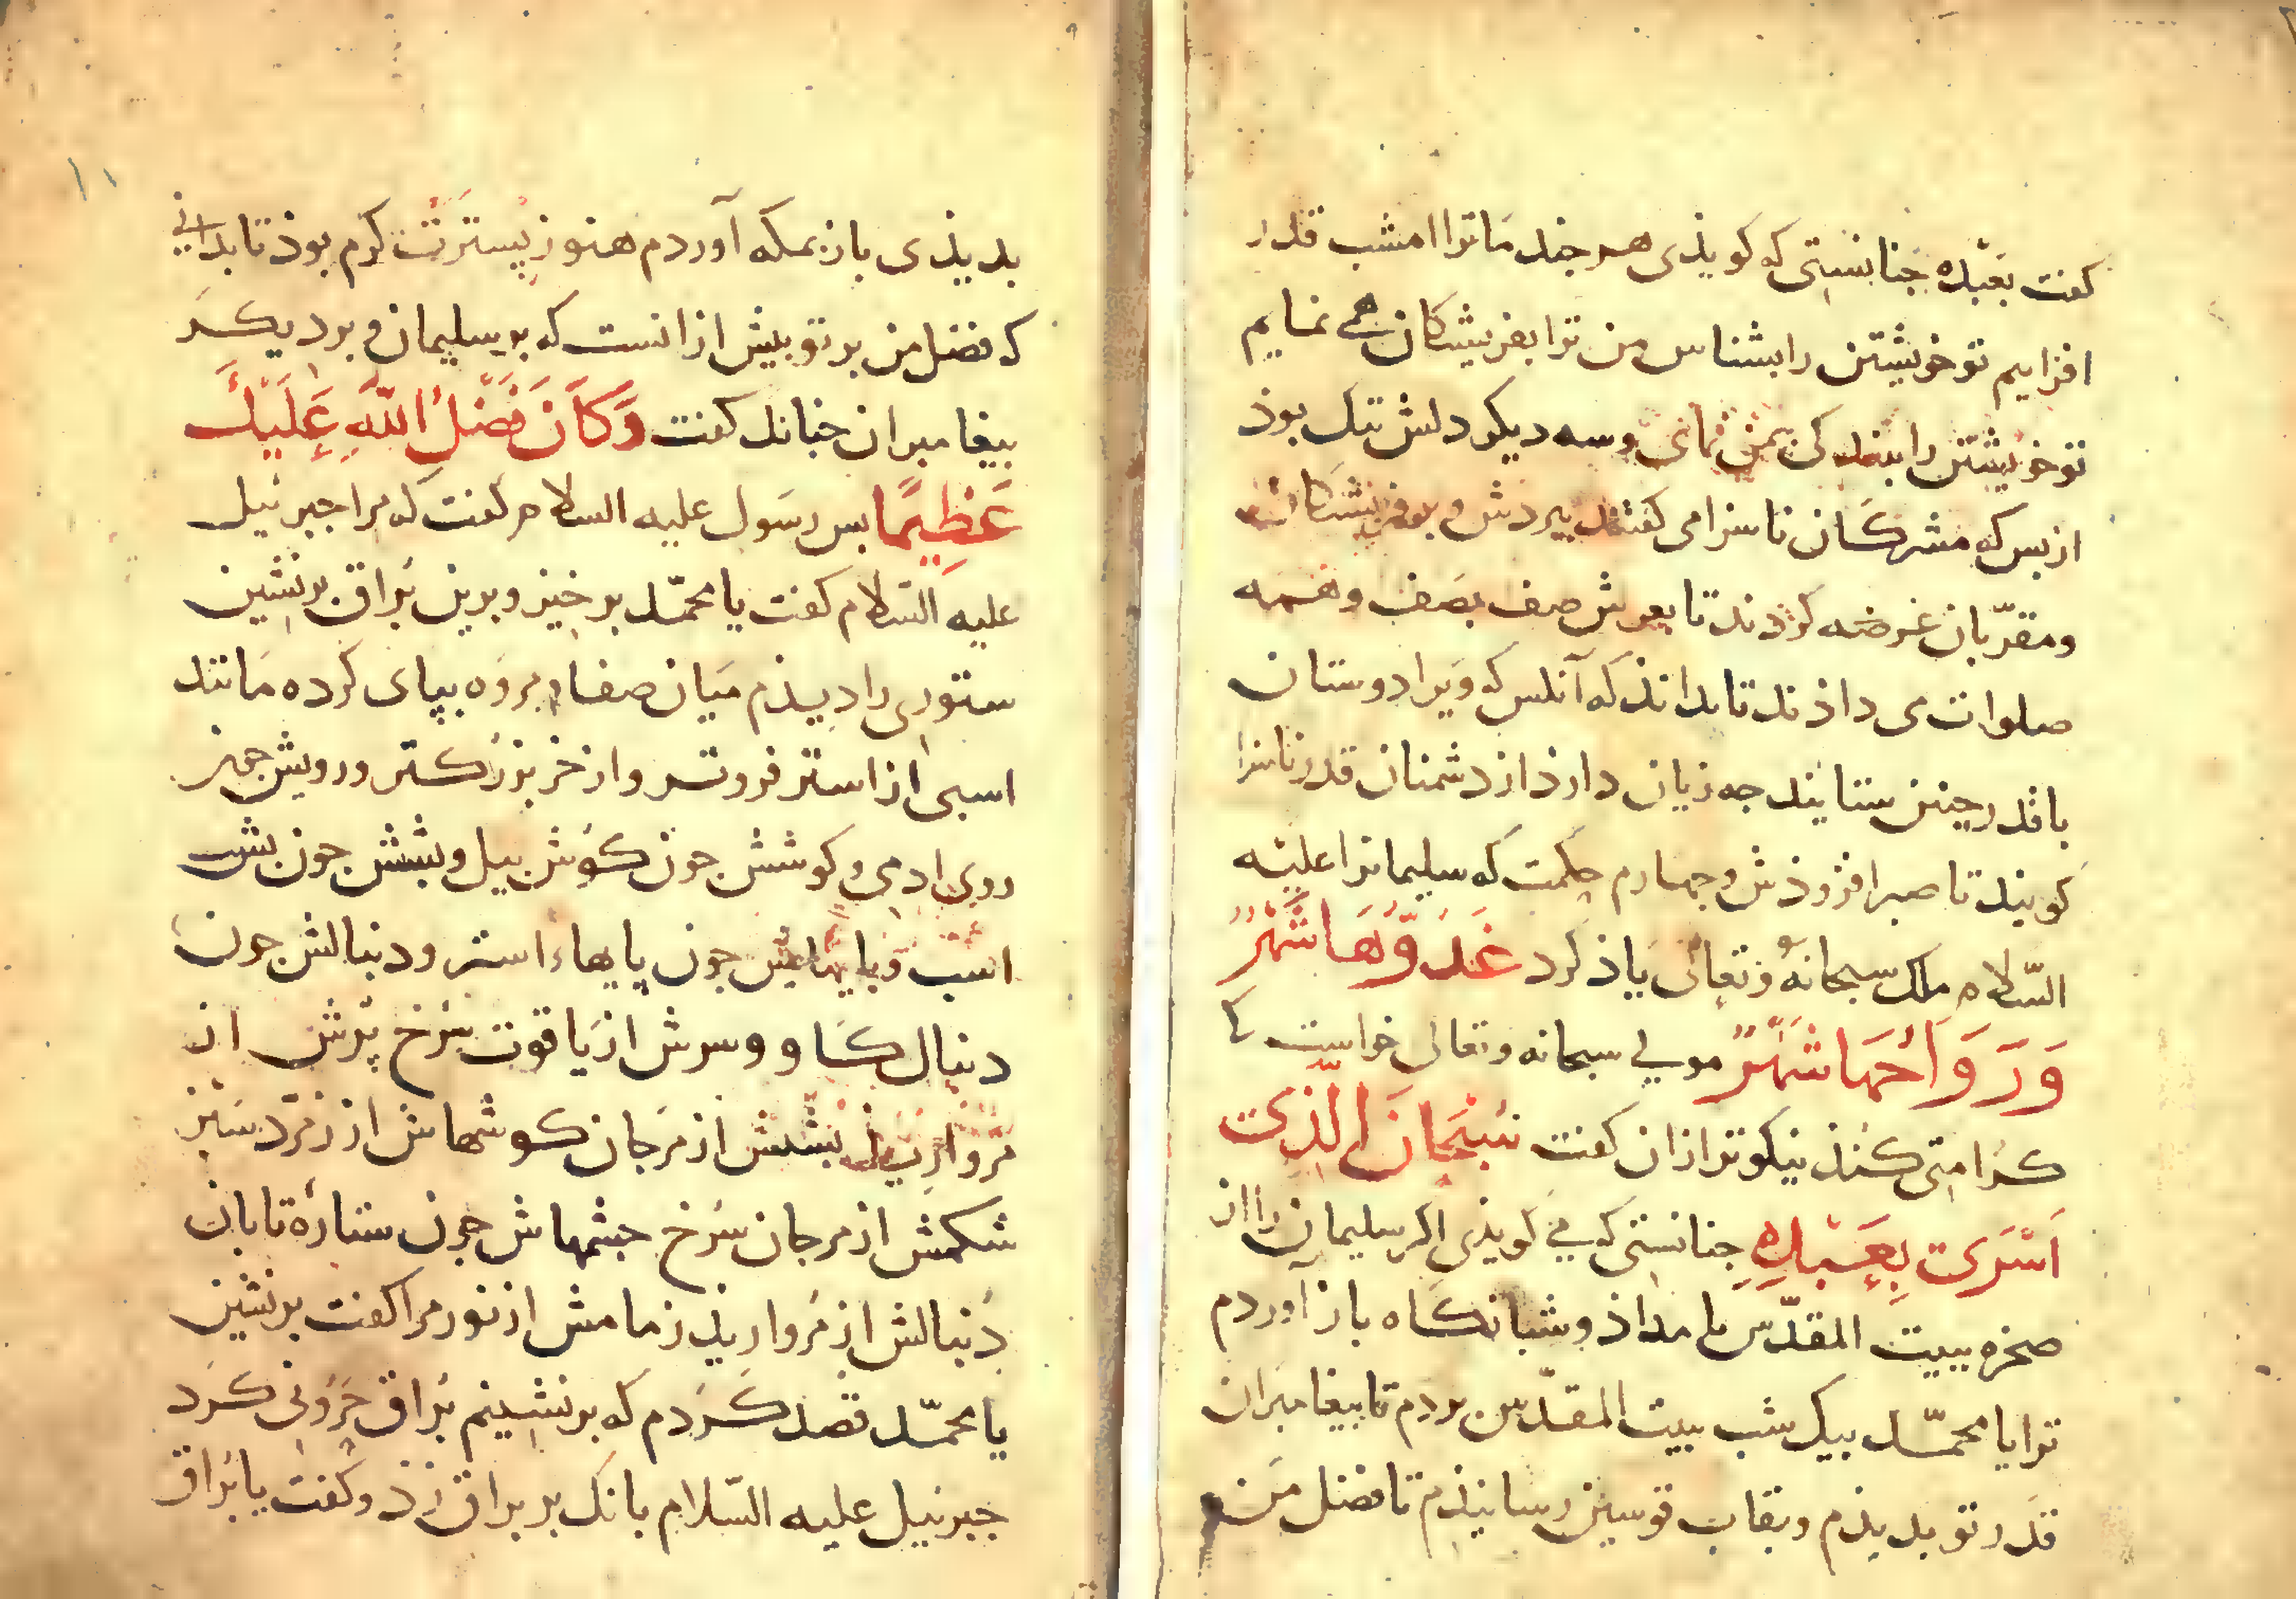 کفت بعَبْدِه جنانستی که کویذی هر جند مَا ترا امشب قدر
افزایم تو خویشتن را بشناس من ترا بفریشتکان می نمایم
تو خویشتن را بمن نمای وسه دیکر دلش تنک بوذ
از بس که مشرکان ناسزا می کفتند ببردش و بر فریشتکان
ومقرّبان عرضه کردند تا بعرش صف بصَف وهمه
صلوات می داذند تا بدانذ که آنکس که وَیرا دوستان
باقدر چنین ستایند جه زیان دارذ از دشمنان قدر ناسزا
کویند تا صبر افزوذش وجهارم حکمت که سلیمانرا علیْه
السّلام ملک سبحانهُ وتعالی یاذ کرد غدُوُّهَا شَهْرٌ
وَرَوَاحُهَا شَهْرٌ مولی سبحانه وتعالی خواست تا
کرامتی کنذ نیکوتر از ان کفت سُبْحَانَ الَّذِی
اَسْرَی بِعَبْدِهِ جنانستی که می کویذی اکر سلیمان را از
صخره ببیت المقدّس بامداذ وشبانکاه باز آوردم
ترا یا محمّد بیک شب ببیت المقدّس بردم تا بیغامبران
قدر تو بدیذم وبقاب قوسین رسانیذم تا فضل مَن
١١
بدیذی باز بمکه آوردم هنوز بِسترت کرم بوذ تا بدانی
که فضل من بر تو بیش از انست که بر سلیمان و بر دیکر
بیغامبران جنانک کفت وَکَانَ فَضْلُ اللَّهِ عَلَیْکَ
عَظِیمًا بس رسَول علیه السلام کفت که مرا جبرئیل
علیه السّلام کفت یا محمّد بر خیز وبرین بُراق برنشین
ستوری را دیذم میَان صفا ومروَه ببای کرده مَانند
اسبی از استر فروتر واز خر بزرکتر ورویش جون
روی ادمی و کوشش جون کوش بیل وبشش جون بش
اسب وبایهاش جون پایهاء استر ودنبالش جون
دنبال کاو وسرش از یاقوت سُرخ پرش از
مرواریذ بشش از مرجان کوشهاش از زمرّد سَبز
شکمش از مرجان سُرخ جشمهاش جون ستارهٔ تابان
دُنبالش از مُرواریذ زمامش از نور مرا کفت برنشین
یا محمّد قصد کردم که برنشینم بُراق حَرُونی کرد
جبرئیل علیه السّلام بانک بر براق زذ وکفت یا بُراق